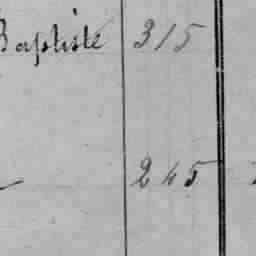 Baptiste 315
245